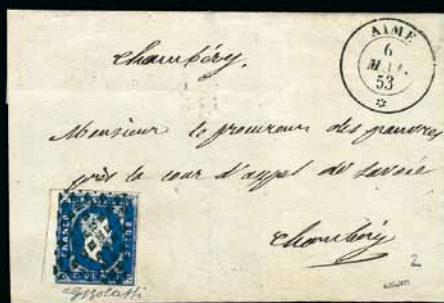 AIME
6
MAI.
53
Chambéry.
Monsieur le procureur des pauvres
près la cour d'appel de Savoie
Chambéry
FRANCO
2